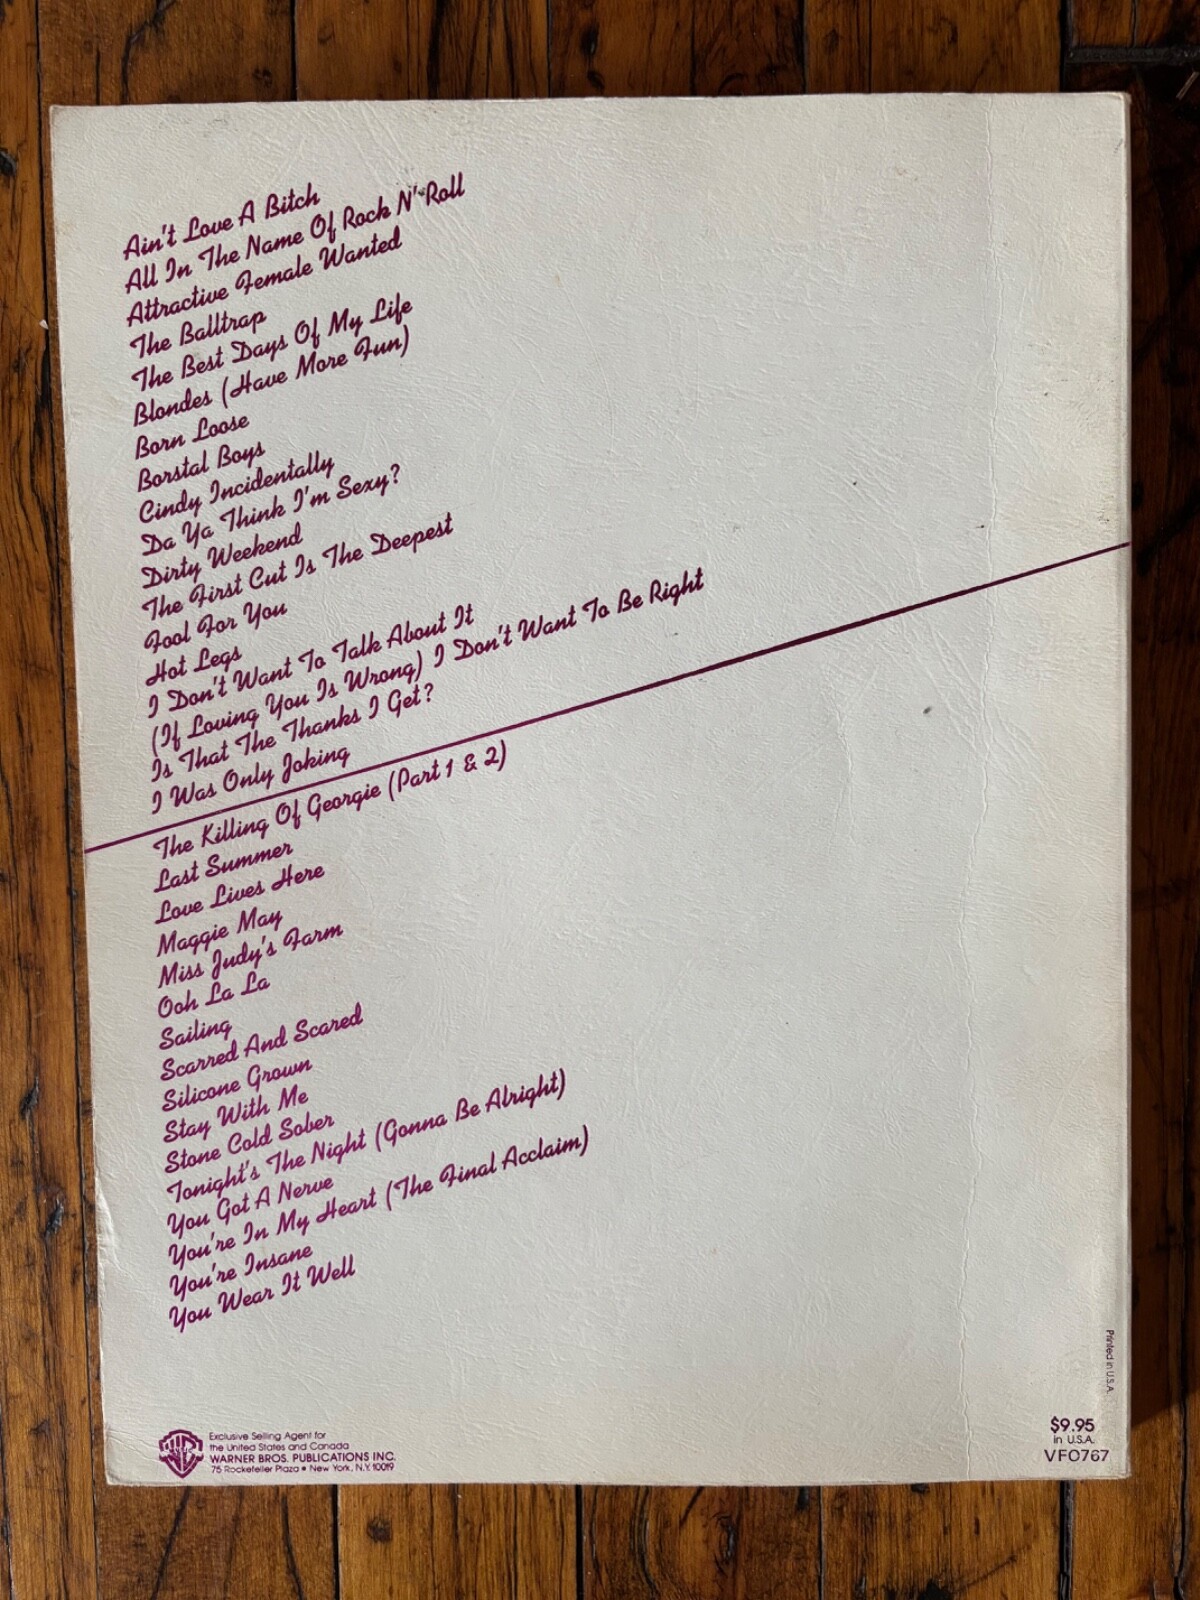 Ain't Love A Bitch
All In The Name Of Rock N' Roll
Attractive Female Wanted
The Balltrap
The Best Days Of My Life
Blondes (Have More Fun)
Born Loose
Borstal Boys
Cindy Incidentally
Da Ya Think I'm Sexy?
Dirty Weekend
The First Cut Is The Deepest
Fool For You
Hot Legs
I Don't Want To Talk About It
(If Loving You Is Wrong) I Don't Want To Be Right
Is That The Thanks I Get?
I Was Only Joking
The Killing Of Georgie (Part 1 & 2)
Last Summer
Love Lives Here
Maggie May
Miss Judy's Farm
Ooh La La
Sailing
Scarred And Scared
Silicone Grown
Stay With Me
Stone Cold Sober
Tonight's The Night (Gonna Be Alright)
You Got A Nerve
You're In My Heart (The Final Acclaim)
You're Insane
You Wear It Well
Printed in U.S.A.
Exclusive Selling Agent for
the United States and Canada
WARNER BROS. PUBLICATIONS INC.
75 Rockefeller Plaza • New York, N.Y. 10019
$9.95
in U.S.A.
VF0767